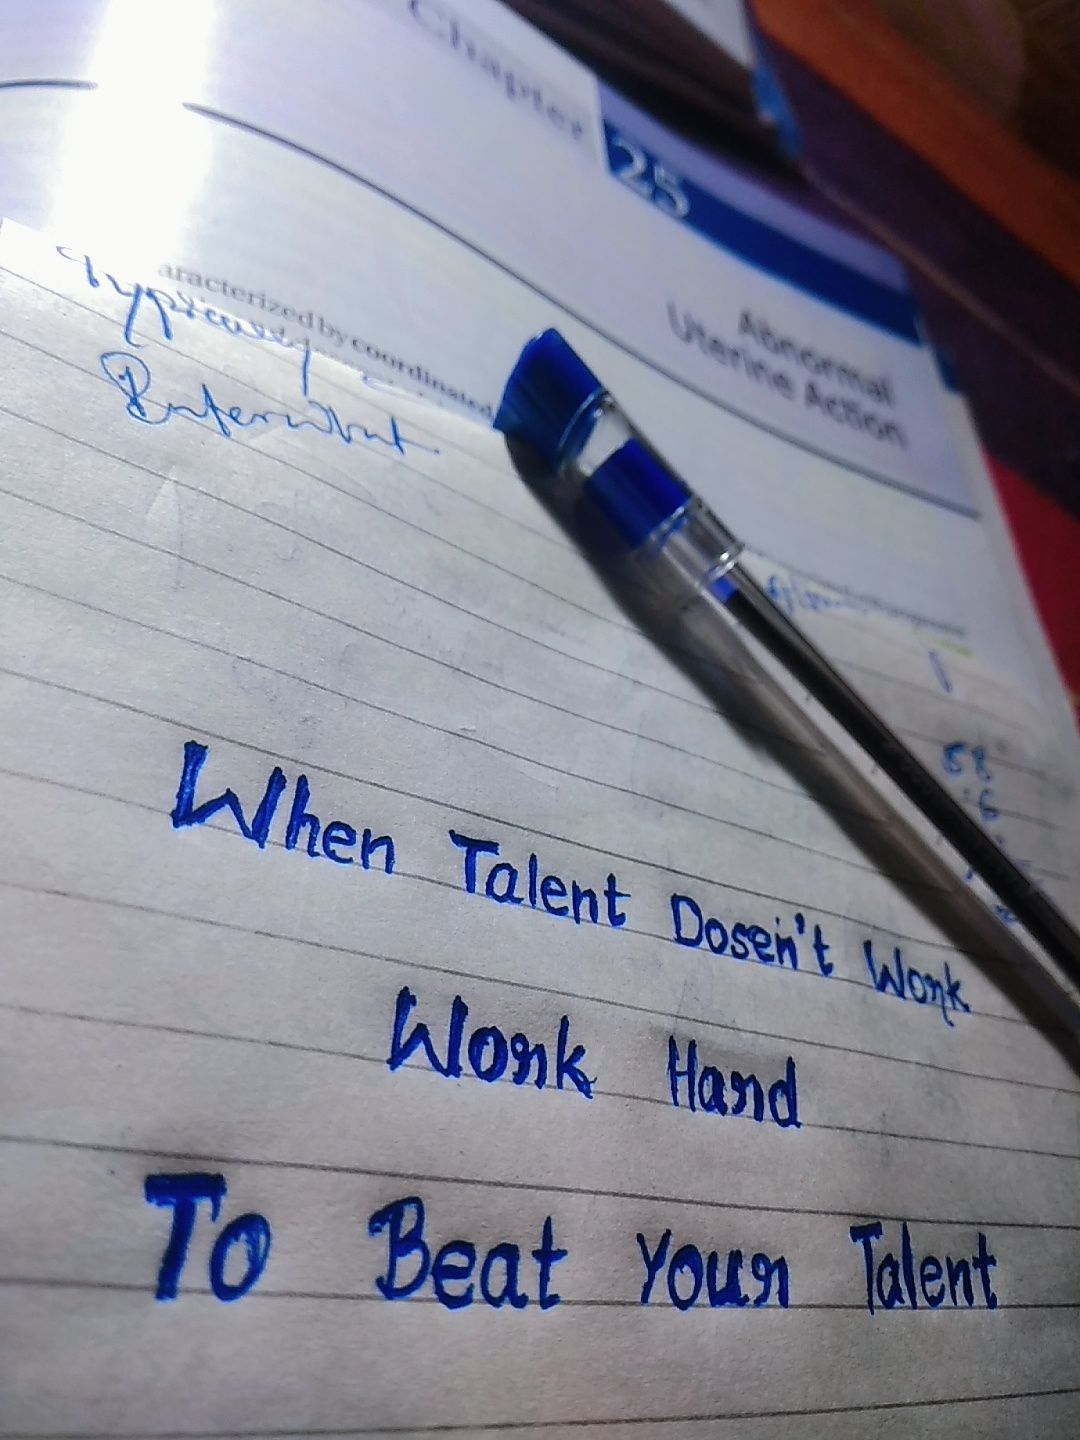 Chapter
25
Abnormal
Uterine Action
aracterized by coordinated
Typically
When Talent Dosen't Work
Work Hard
To Beat Your Talent